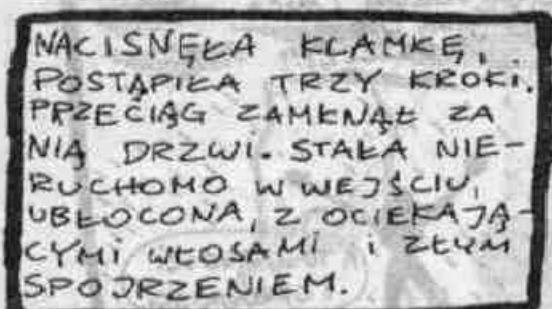 NACISNĘŁA KLAMKĘ,
POSTĄPIŁA TRZY KROKI.
PRZECIĄG ZAMKNĄŁ ZA
NIĄ DRZWI. STAŁA NIE-
RUCHOMO W WEJŚCIU,
UBŁOCONA, Z OCIEKAJĄ-
CYMI WŁOSAMI I ZŁYM
SPOJRZENIEM.